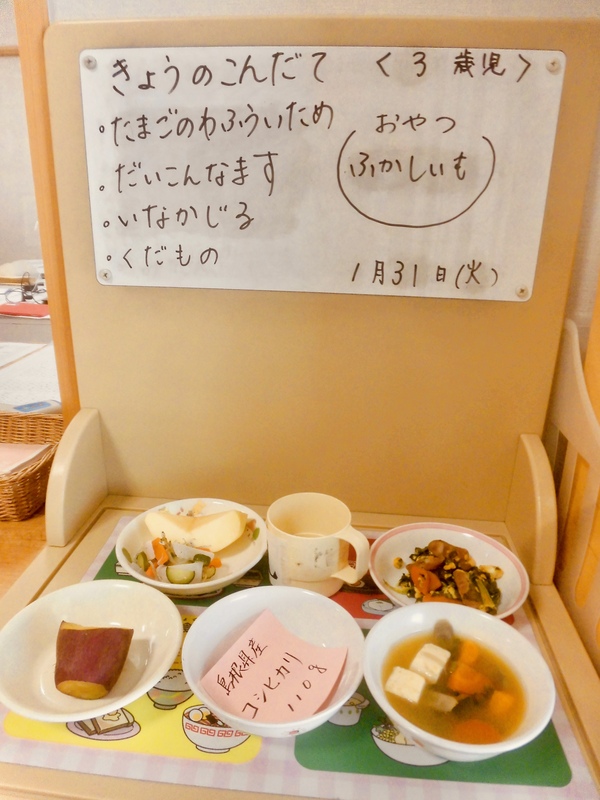 きょうのこんだて 〈3歳児〉
・たまごのわふういため
・だいこんなます
・いなかじる
・くだもの
おやつ
ふかしいも
1月31日(火)
島根県産
コシヒカリ
110g